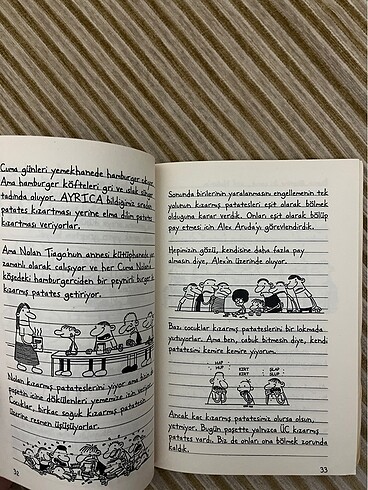 Cuma günleri yemekhanede hamburger
Ama hamburger köfteleri gri ve ıslak
tadında oluyor. AYRICA bildiğimiz
patates kızartması yerine elma dilim patates
kızartması veriyorlar.
Ama Nolan Tiago'nun annesi kütüphanede
zamanlı olarak çalışıyor ve her Cuma Nolan'a
köşedeki hamburgerciden bir peynirli burger
kızarmış patates getiriyor.
Nolan kızarmış patateslerini yiyor ama
poşetin içine dökülenleri yememize izin
Çocuklar, birkaç soğuk kızarmış patatesin
üzerine resmen üşüşüyorlar.
32
Sonunda birilerinin yaralanmasını engellemenin tek
yolunun kızarmış patatesleri eşit olarak bölmek
olduğuna karar verdik. Onları eşit olarak bölüp
pay etmesi için Alex Aruda'yı görevlendirdik.
Hepimizin gözü, kendisine daha fazla pay
almasın diye, Alex'in üzerinde oluyor.
Bazı çocuklar kızarmış patateslerini bir lokmada
yutuyorlar. Ama ben, çabuk bitmesin diye, kendi
patatesimi kemire kemire yiyorum.
HAP HUP
KIRT KIRT
ŞLAP ŞLUP
Ancak kaç kızarmış patatesimiz olursa olsun,
yetmiyor. Bugün poşette yalnızca ÜÇ kızarmış
patates vardı. Biz de onları ona bölmek zorunda
kaldık.
33